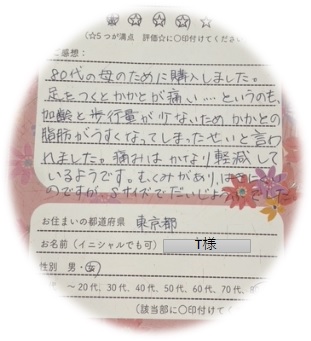 (☆5つが満点 評価☆に○印付けてくださ
ご感想：
80代の母のために購入しました。
足をつくとかかとが痛い…というのも、
加齢と歩行量が少ないため かかとの
脂肪がうすくなってしまったせいと言わ
れました。痛みは かなり軽減して
いるようです。むくみがあり、
のですが、Sサイズでだいじょうぶでした
お住まいの都道府県 東京都
お名前（イニシャルでも可） T様
性別 男・女
～20代、30代、40代、50代、60代、70代、
（該当部に○印付けてく